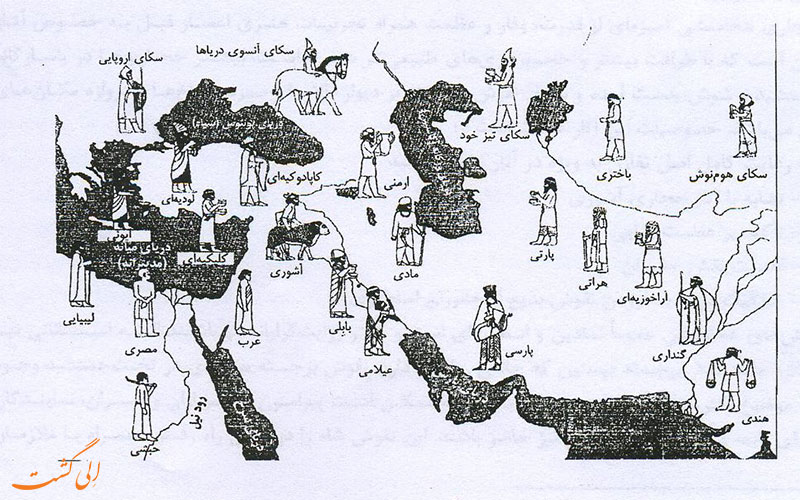 سکای آنسوی دریاها
سکای اروپایی
سکای تیز خود
باختری
سکای هوم‌نوش
ارمنی
کاپادوکیه‌ای
لودیه‌ای
ایونی
کلیکیه‌ای
دریای میانه
(مدیترانه)
آشوری
مادی
پارتی
هراتی
آراخوزیه‌ای
لیبیایی
مصری
عرب
بابلی
عیلامی
پارسی
گنداری
هندی
رود نیل
حبشی
الی گشت